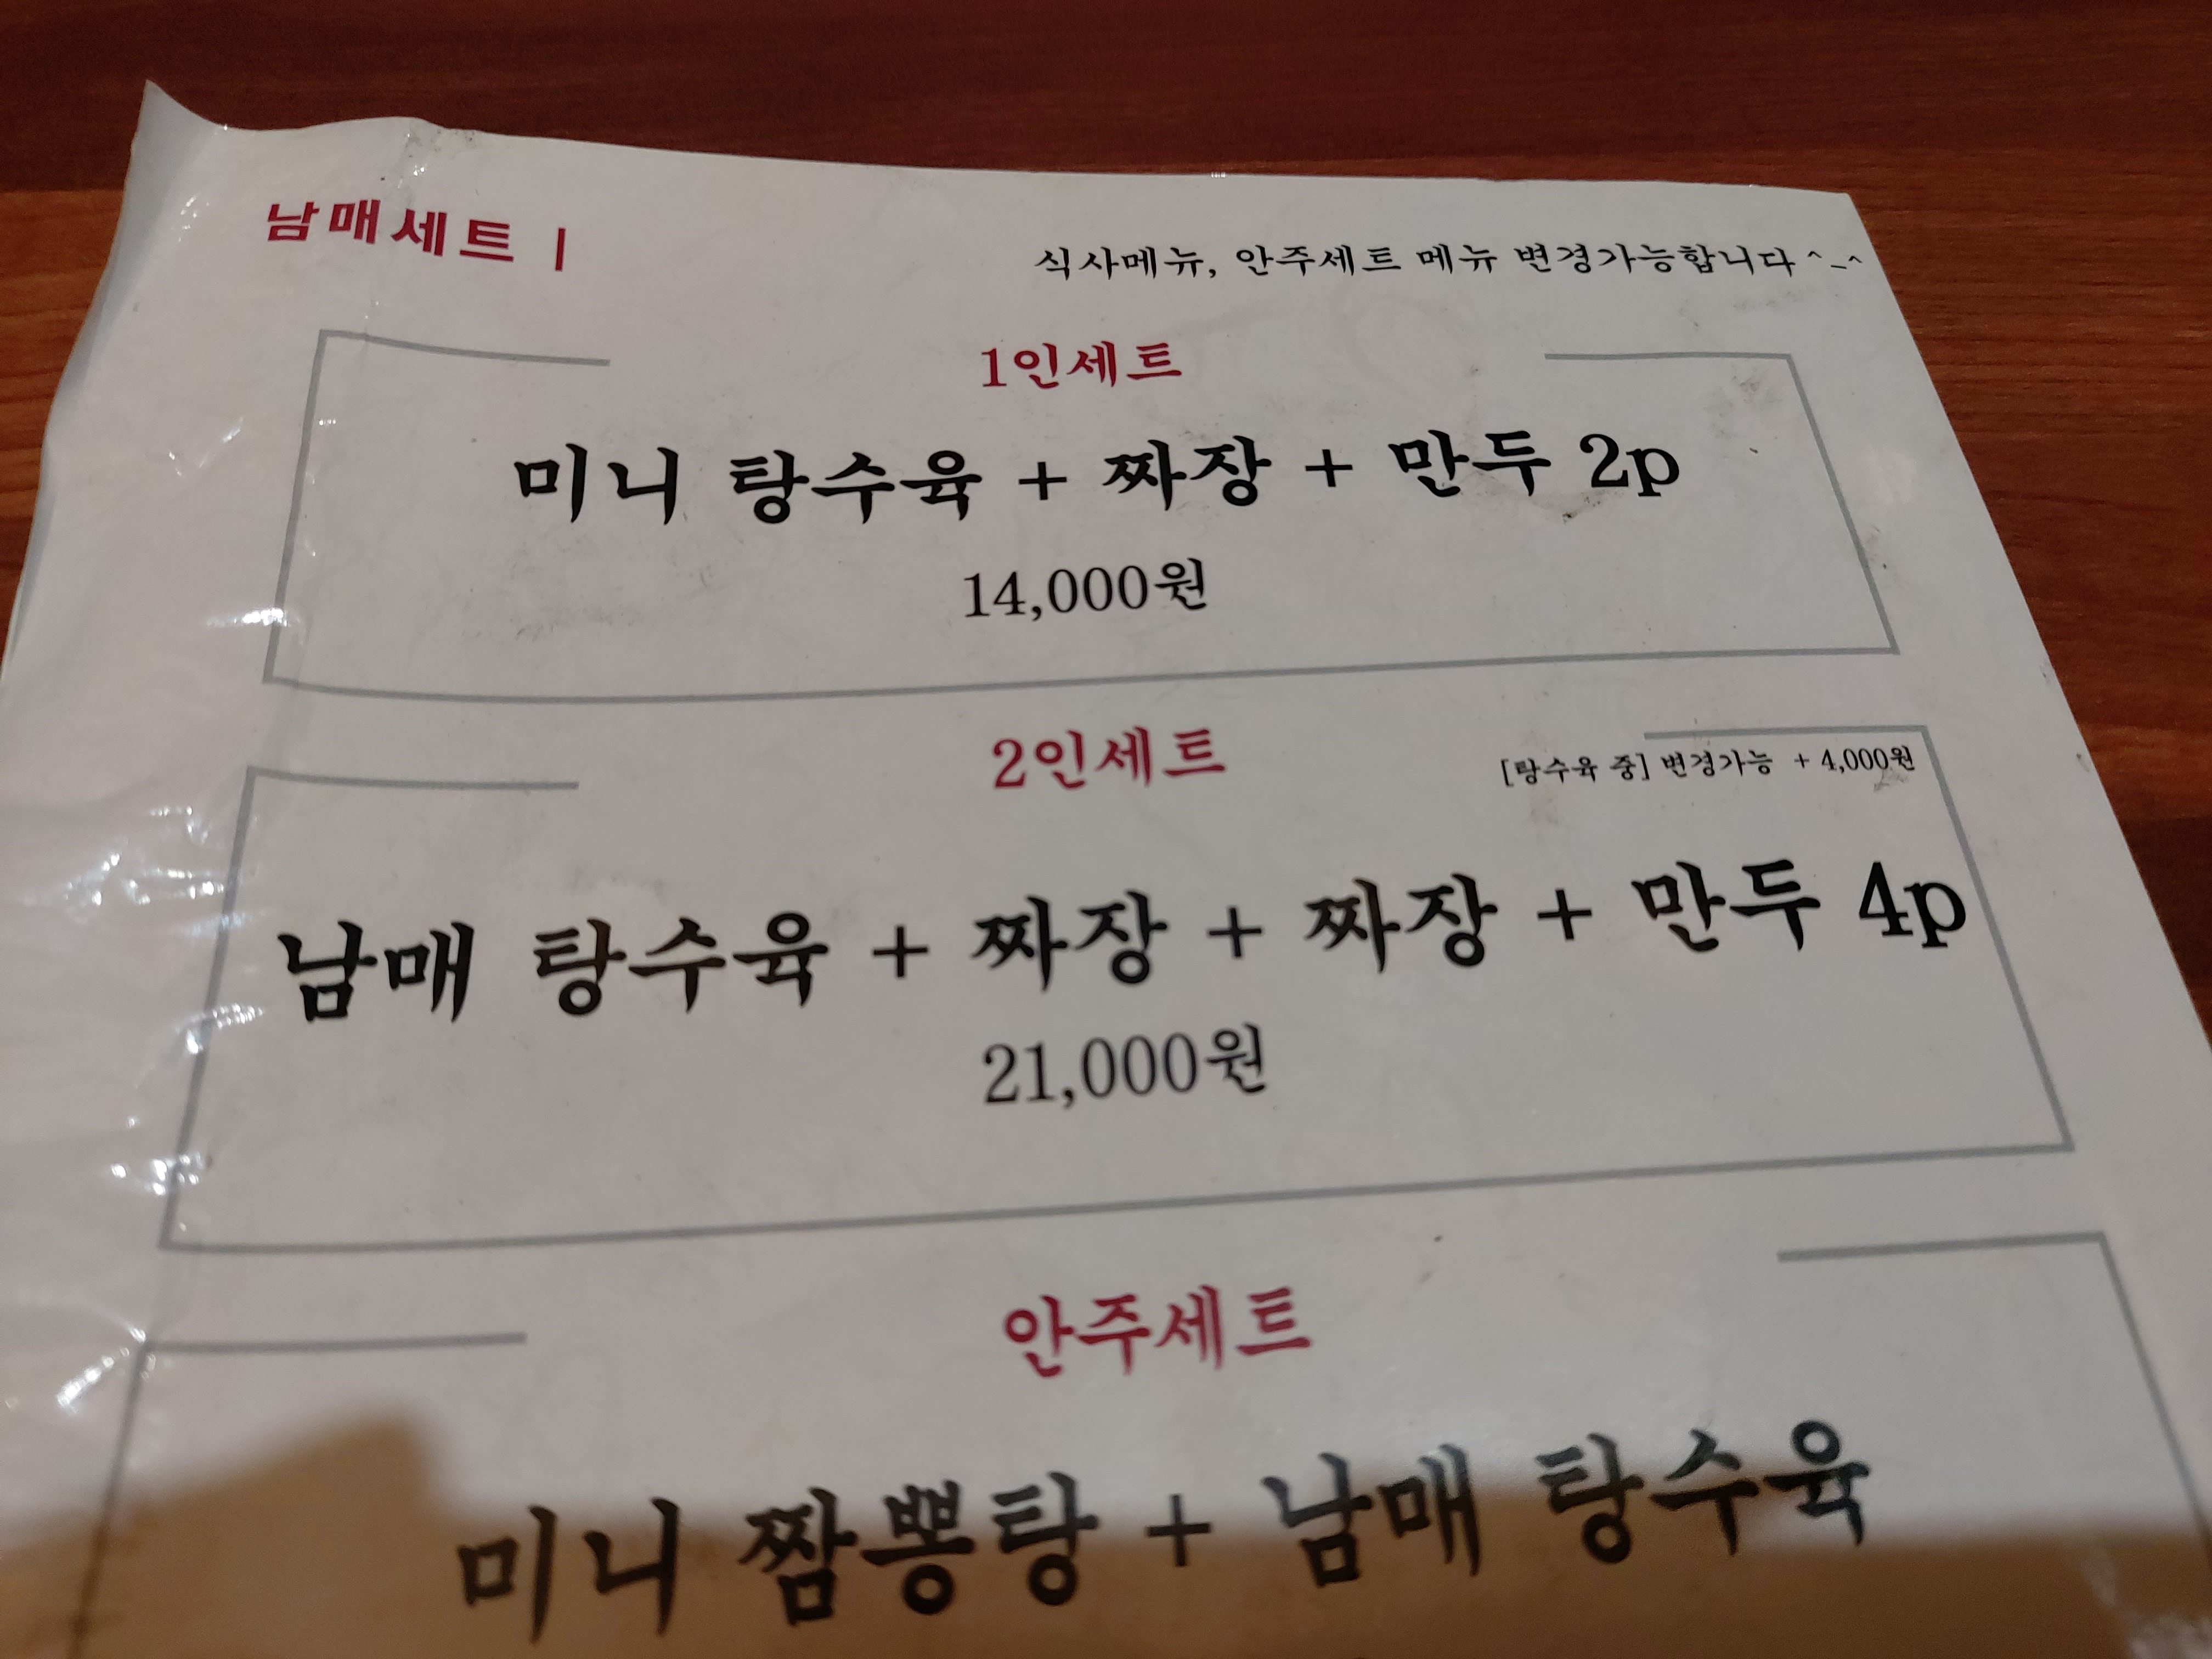 남매세트 |
식사메뉴, 안주세트 메뉴 변경가능합니다^_^
1인세트
미니 탕수육 + 짜장 + 만두 2p
14,000원
2인세트
[탕수육 중] 변경가능 + 4,000원
남매 탕수육 + 짜장 + 짜장 + 만두 4p
21,000원
안주세트
미니 짬뽕탕 + 남매 탕수육